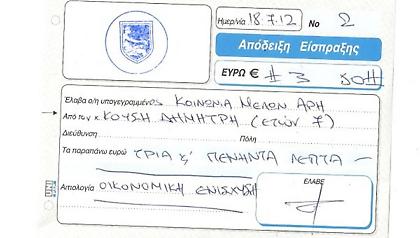 Ημερ/νία 18.7.12 Νο 2
Απόδειξη Είσπραξης
ΕΥΡΩ € #3 50#
Έλαβα ο/η υπογεγραμμένος ΚΟΙΝΩΝΙΑ ΜΕΛΩΝ ΑΡΗ
Από τον κ. ΚΟΥΣΗ ΔΗΜΗΤΡΗ (ΕΤΩΝ 7)
Διεύθυνση Πόλη
Τα παραπάνω ευρώ ΤΡΙΑ & ΠΕΝΗΝΤΑ ΛΕΠΤΑ —
Αιτιολογία ΟΙΚΟΝΟΜΙΚΗ ΕΝΙΣΧΥΣΗ
ΕΛΑΒΕ